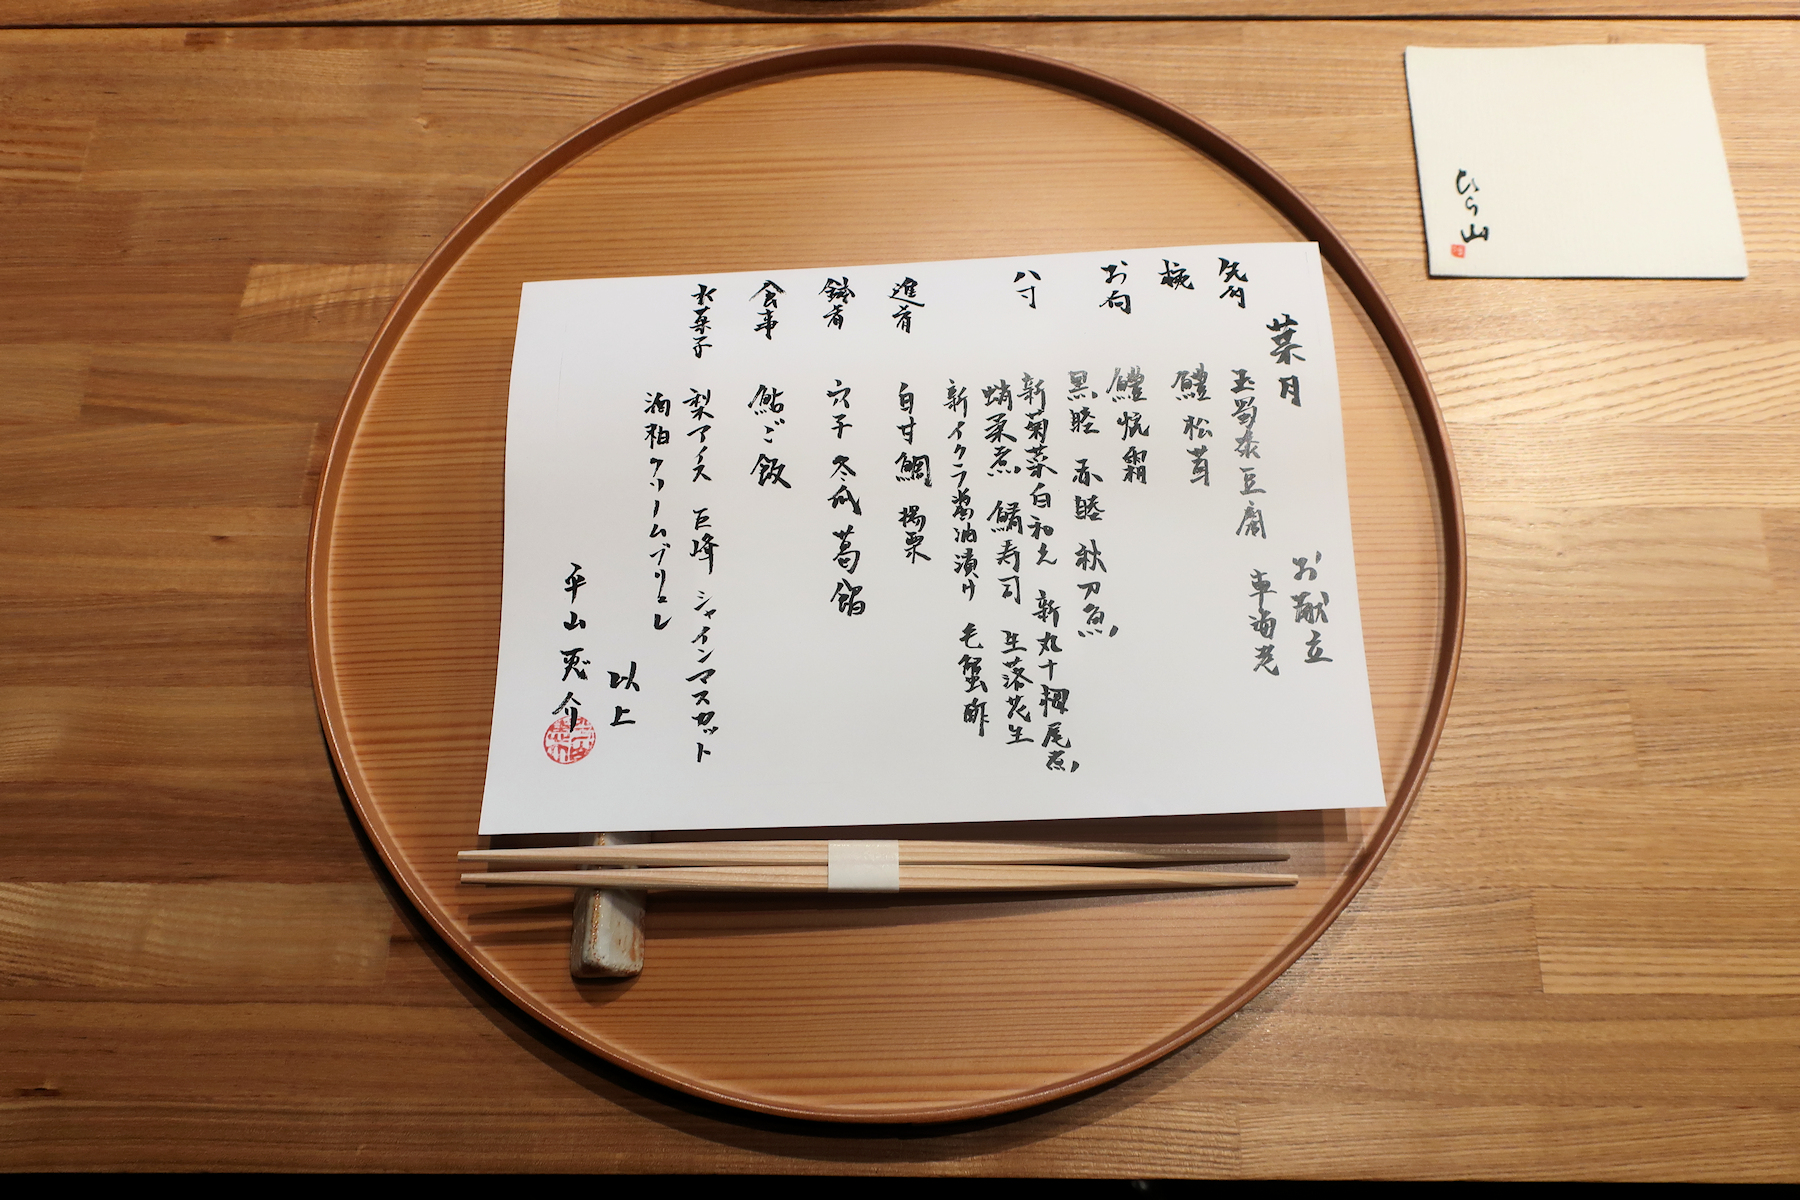 葉月
お献立
先付
玉蜀黍豆腐 車海老
椀
鱧 松茸
お向
鱧焼霜
黒睦 赤睦 秋刀魚
八寸
新菊菜白和え 新丸十梔尾煮
蛸柔煮 鯖寿司 生落花生
新イクラ醤油漬け 毛蟹酢
進肴
白甘鯛 揚栗
鉢肴
穴子 冬瓜 葛餡
食事
鮎ご飯
水菓子
梨アイス 巨峰 シャインマスカット
酒粕クリームブリュレ
以上
平山 介
ひら山